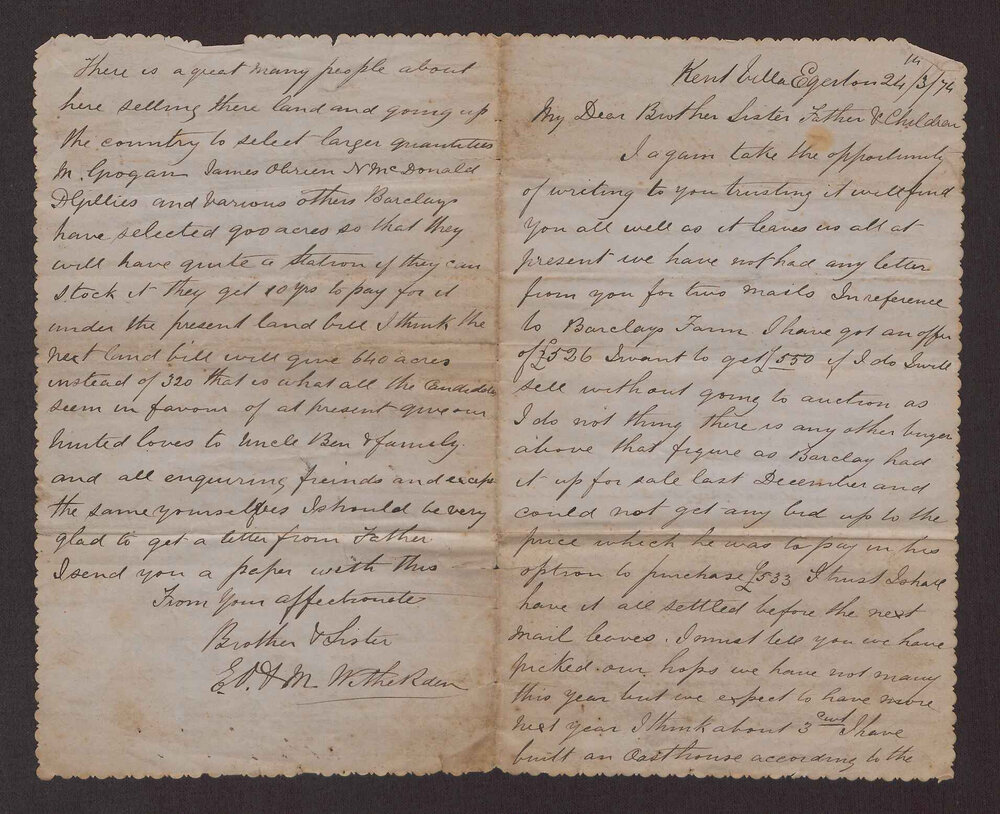 Kent Villa Egerton 24th/3/74
My Dear Brother Sister Father & Children
I again take the opportunity
of writing to you trusting it will find
you all well as it leaves us all at
present we have not had any letter
from you for two mails In reference
to Barclays Farm I have got an offer
of £526 I want to get £550 if I do I will
sell without going to auction as
I do not thing there is any other buyer
above that figure as Barclay had
it up for sale last December and
could not get any bid up to the
price which he was to pay in his
option to purchase £533 I trust I shall
have it all settled before the next
mail leaves. I must tell you we have
picked our hops we have not many
this year but we expect to have more
next year I think about 3 cwt I have
built an Oasthouse according to the
There is a great many people about
here selling there land and going up
the country to select larger quantities
M. Grogan James Obrien N McDonald
D Gillies and various others Barclays
have selected 900 acres so that they
will have quite a Station if they can
stock it they get 10 yrs to pay for it
under the present land bill I think the
next land bill will give 640 acres
instead of 320 that is what all the Candidates
seem in favour of at present give our
United loves to Uncle Ben & family
and all enquiring freinds and except
the same yourselves I should be very
glad to get a letter from Father
I send you a paper with this
From Your affectionate
Brother & Sister
& M Witherden